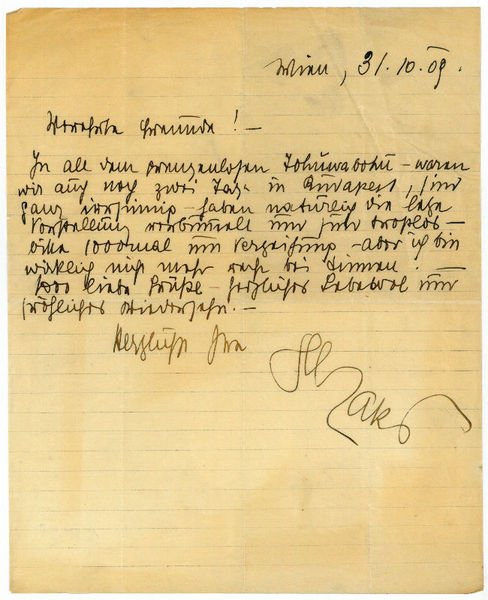 Wien, 31.10.09.
Verehrte Freunde! —
In all dem grenzenlosen Tohuwabohu – waren
wir auch noch zwei Tage in Budapest, sind
ganz irrsinnig – haben natürlich die letzte
Vorstellung verbummelt und sind trostlos –
bitte 1000mal um Verzeihung – aber ich bin
wirklich nicht mehr recht bei Sinnen.
1000 liebe Grüße – herzliches Lebewol und
fröhliches Wiedersehn. —
Herzlichst Ihre